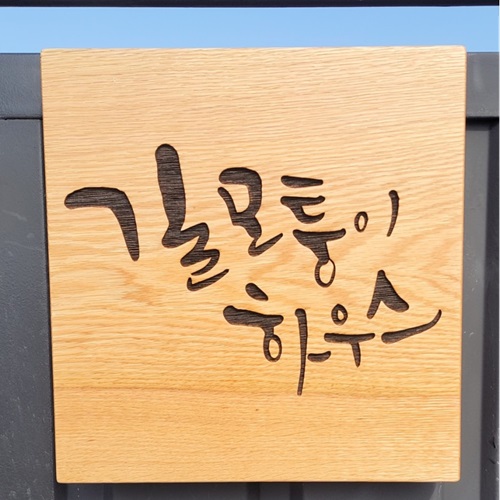 길모퉁이
하우스